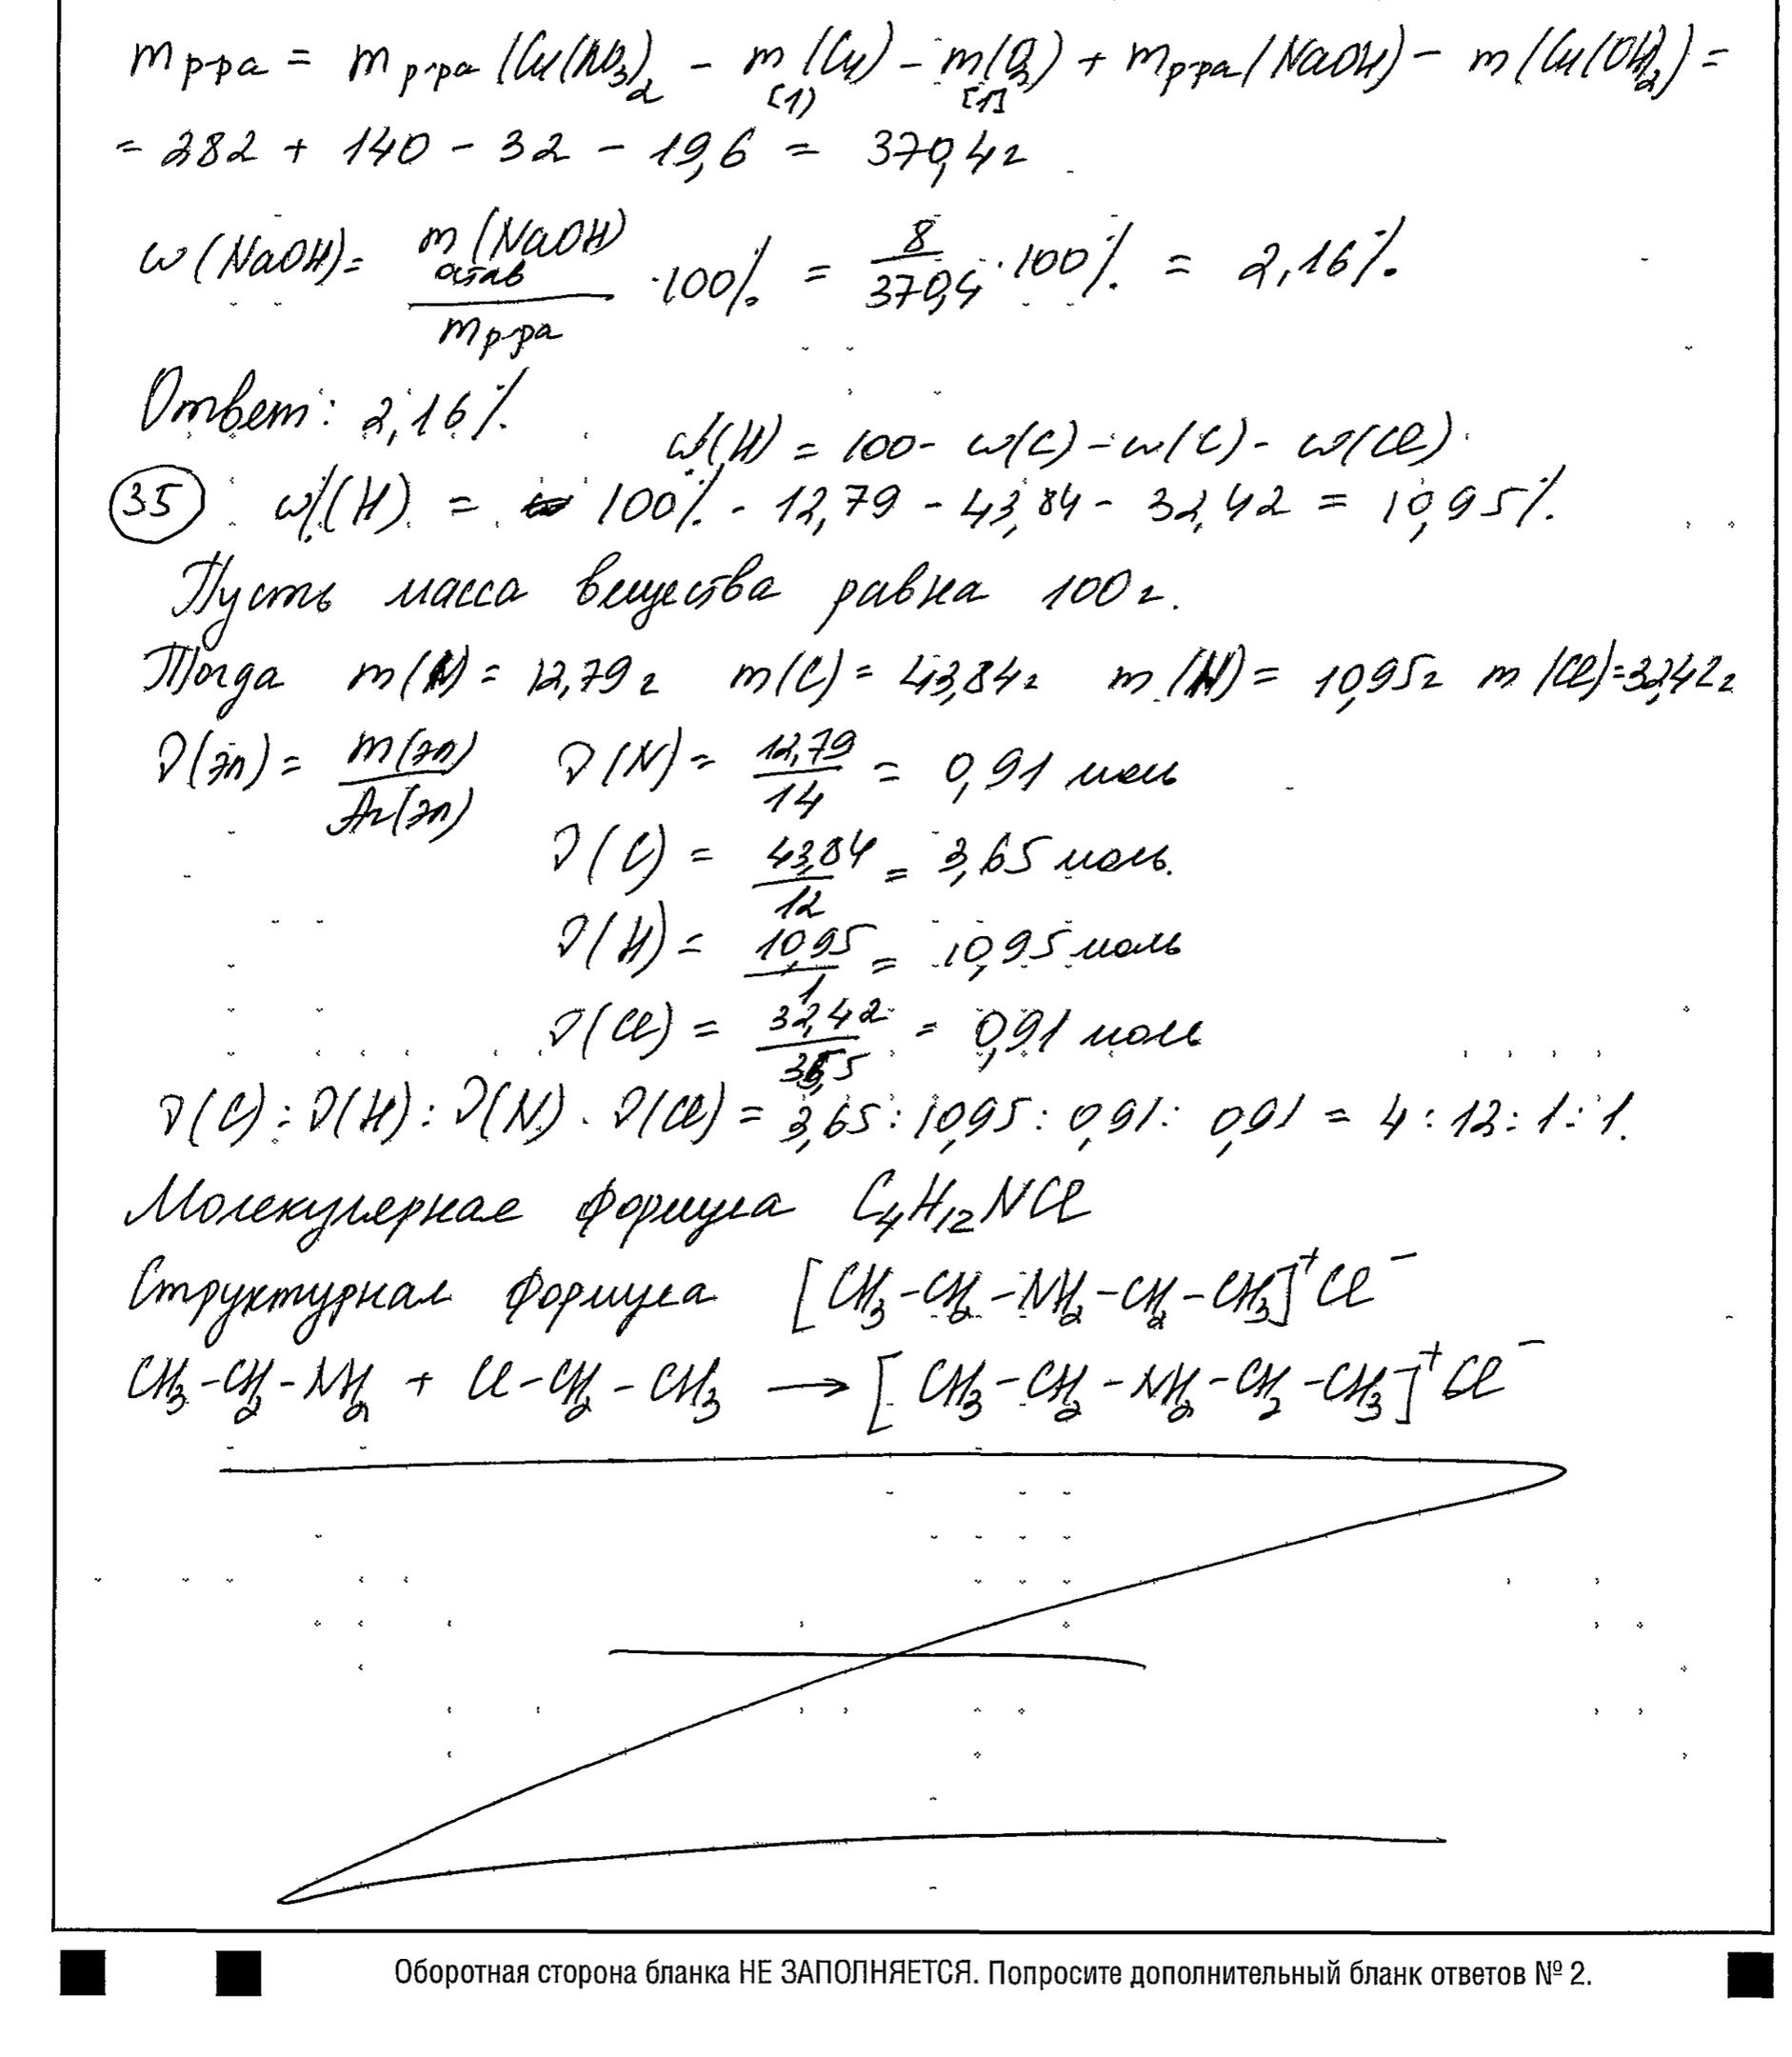 m р-ра = m р-ра (Cu(NO3)2 - m (Cu) - m(O2) + m р-ра (NaOH) - m (Cu(OH)2) =
(1) [1]
= 282 + 140 - 32 - 19,6 = 370,4 г
w (NaOH) = m (NaOH) остав / m р-ра · 100% = 8 / 370,4 · 100% = 2,16%.
Ответ: 2,16%.
w(H) = 100 - w(C) - w(C) - w(Cl)
35 w(H) = 100% - 12,79 - 43,84 - 32,42 = 10,95%.
Пусть масса вещества равна 100 г.
Тогда m(N) = 12,79 г m(C) = 43,84 г m (H) = 10,95 г m (Cl) = 32,42 г
ν(эл) = m(эл) / Ar(эл) ν(N) = 12,79 / 14 = 0,91 моль
ν(C) = 43,84 / 12 = 3,65 моль.
ν(H) = 10,95 / 1 = 10,95 моль
ν(Cl) = 32,42 / 35,5 = 0,91 моль
ν(C) : ν(H) : ν(N) : ν(Cl) = 3,65 : 10,95 : 0,91 : 0,91 = 4 : 12 : 1 : 1.
Молекулярная формула C4H12NCl
Структурная формула [CH3-CH2-NH2-CH2-CH3]+Cl-
CH3-CH2-NH2 + Cl-CH2-CH3 → [CH3-CH2-NH2-CH2-CH3]+Cl-
Оборотная сторона бланка НЕ ЗАПОЛНЯЕТСЯ. Попросите дополнительный бланк ответов № 2.